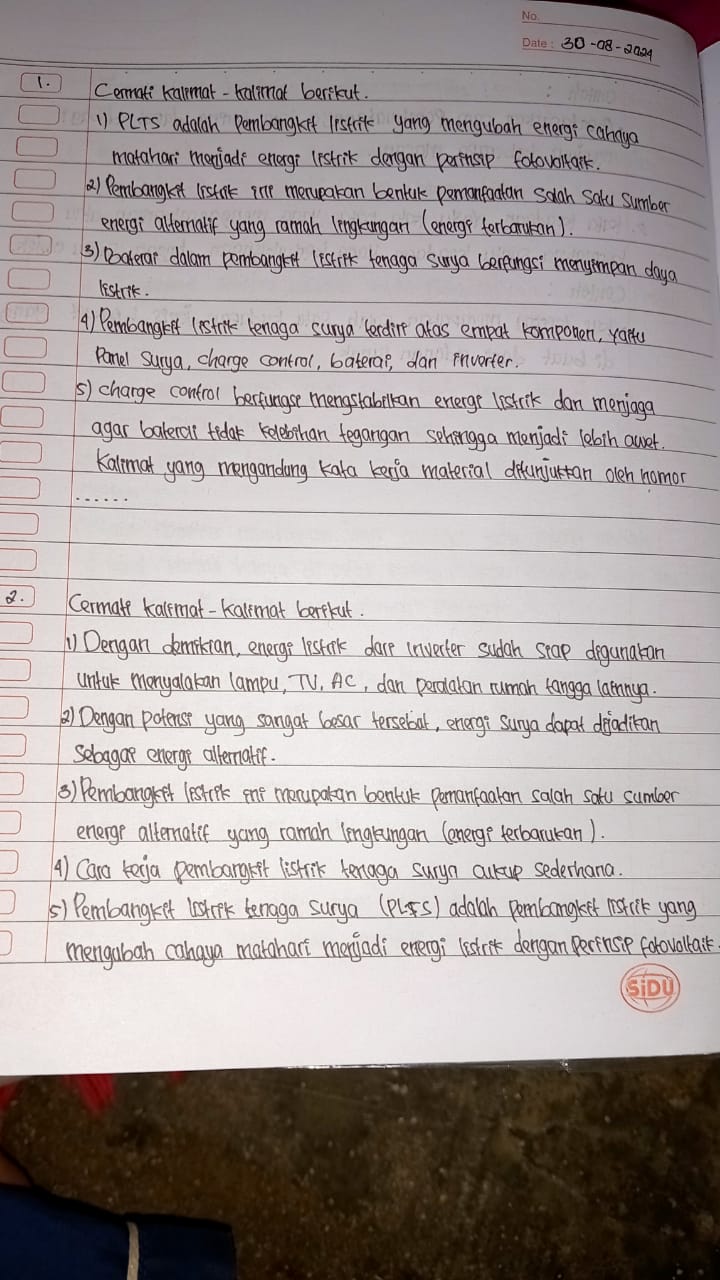 No.
Date : 30-08-2024
1. Cermati kalimat-kalimat berikut.
1) PLTS adalah Pembangkit listrik yang mengubah energi cahaya
matahari menjadi energi listrik dengan perinsip fotovoltaik.
2) Pembangkit listrik ini merupakan bentuk pemanfaatan salah satu sumber
energi alternatif yang ramah lingkungan (energi terbarukan).
3) Baterai dalam pembangkit listrik tenaga surya berfungsi menyimpan daya
listrik.
4) Pembangkit listrik tenaga surya terdiri atas empat komponen, yaitu
Panel Surya, charge control, baterai, dan inverter.
5) charge control berfungsi mengstabilkan energi listrik dan menjaga
agar baterai tidak kelebihan tegangan sehingga menjadi lebih awet.
Kalimat yang mengandung kata kerja material ditunjukkan oleh nomor
......
2. Cermati kalimat-kalimat berikut.
1) Dengan demikian, energi listrik dari inverter sudah siap digunakan
untuk menyalakan lampu, TV, AC, dan peralatan rumah tangga lainnya.
2) Dengan potensi yang sangat besar tersebut, energi surya dapat dijadikan
Sebagai energi alternatif.
3) Pembangkit listrik ini merupakan bentuk pemanfaatan salah satu sumber
energi alternatif yang ramah lingkungan (energi terbarukan).
4) Cara kerja pembangkit listrik tenaga surya cukup sederhana.
5) Pembangkit listrik tenaga surya (PLTS) adalah pembangkit listrik yang
mengubah cahaya matahari menjadi energi listrik dengan perinsip fotovoltaik.
SiDU